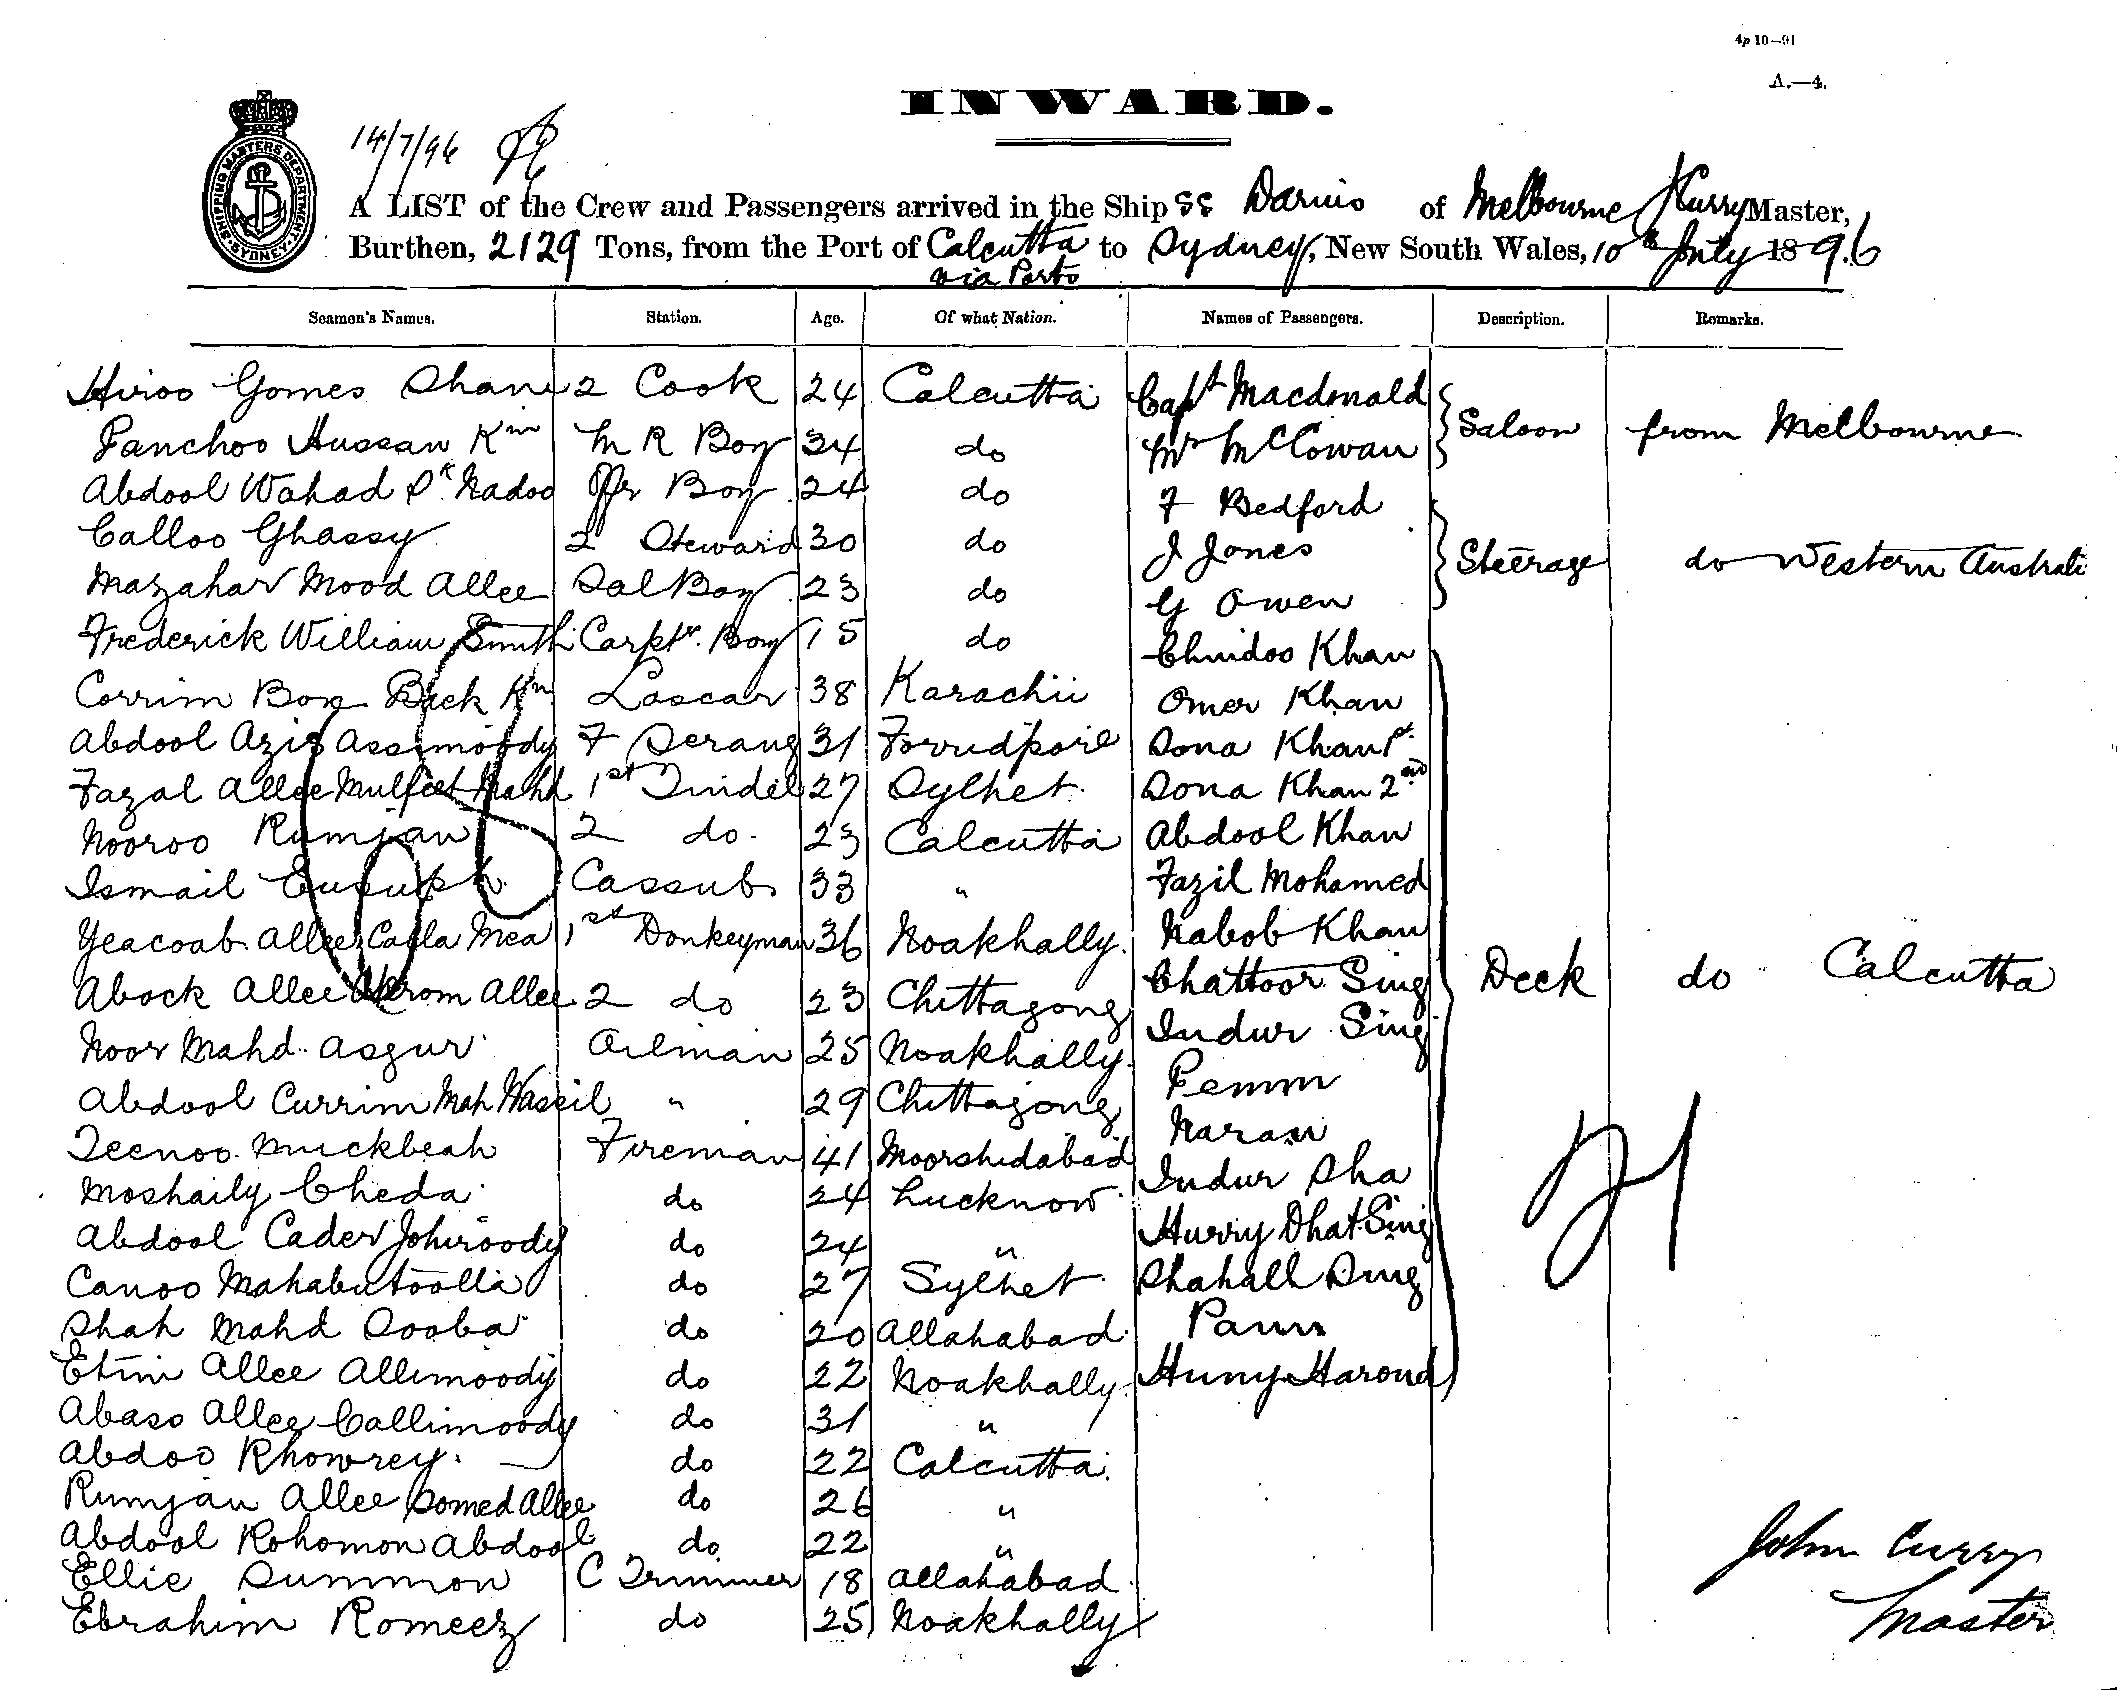 4p 10—91
A.—4.
INWARD.
SHIPPING MASTERS DEPARTMENT SYDNEY
14/7/96
A LIST of the Crew and Passengers arrived in the Ship SS Darius of Melbourne J Curry Master,
Burthen, 2129 Tons, from the Port of Calcutta to Sydney, New South Wales, 10th July 1896
via Ports
Seamen's Names. Station. Age. Of what Nation. Names of Passengers. Description. Remarks.
Hiroo Gomes Shane 2 Cook 24 Calcutta Capt Macdonald
Panchoo Hussan Kin M R Boy 34 do Mr McCowan Saloon from Melbourne
Abdool Wahad Sk Nadoo Offr Boy 24 do F Bedford
Calloo Ghassy 2 Steward 30 do J Jones Steerage do Western Australi
Mazahar Mood Allee Sal Boy 23 do G Owen
Frederick William Smith Carptr. Boy 15 do Chudoo Khan
Corrim Box Buck Kn Lascar 38 Karachii Omer Khan
Abdool Azis Assimoody F Serang 31 Forrudpore Sona Khan 1st
Fazal Allee Mahd 1st Tindel 27 Sylhet Sona Khan 2nd
Nooroo Rumjan 2 do 23 Calcutta Abdool Khan
Ismail Eusuph Cassub 33 " Fazil Mohamed
Yeacoab Allee Calla Mea 1st Donkeyman 36 Noakhally Nabob Khan
Abock Allee Akrom Allee 2 do 23 Chittagong Chattoor Sing Deck do Calcutta
Noor Mahd. Asgur Oilman 25 Noakhally Indur Sing
Abdool Currim Mah Wassil " 29 Chittagong Pemm
Teenoo Muckbeah Fireman 41 Moorshidabad Naran
Moshaily Cheda do 24 Lucknow Indur Sha
Abdool Cader Johiroody do 24 " Hurry Dhat Sing
Canoo Mahabutoolla do 27 Sylhet Shahall Sing
Shah Mahd Sooba do 20 Allahabad
Etim Allee Allimoody do 22 Noakhally Huny Harond
Abaso Allee Callimoody do 31 "
Abdoo Rhowrey do 22 Calcutta
Rumjan Allee Somed Allee do 26 "
Abdool Rohomon Abdool do 22 "
Ellie Summon C Trimmer 18 Allahabad
Ebrahim Romeez do 25 Noakhally
John Curry
Master